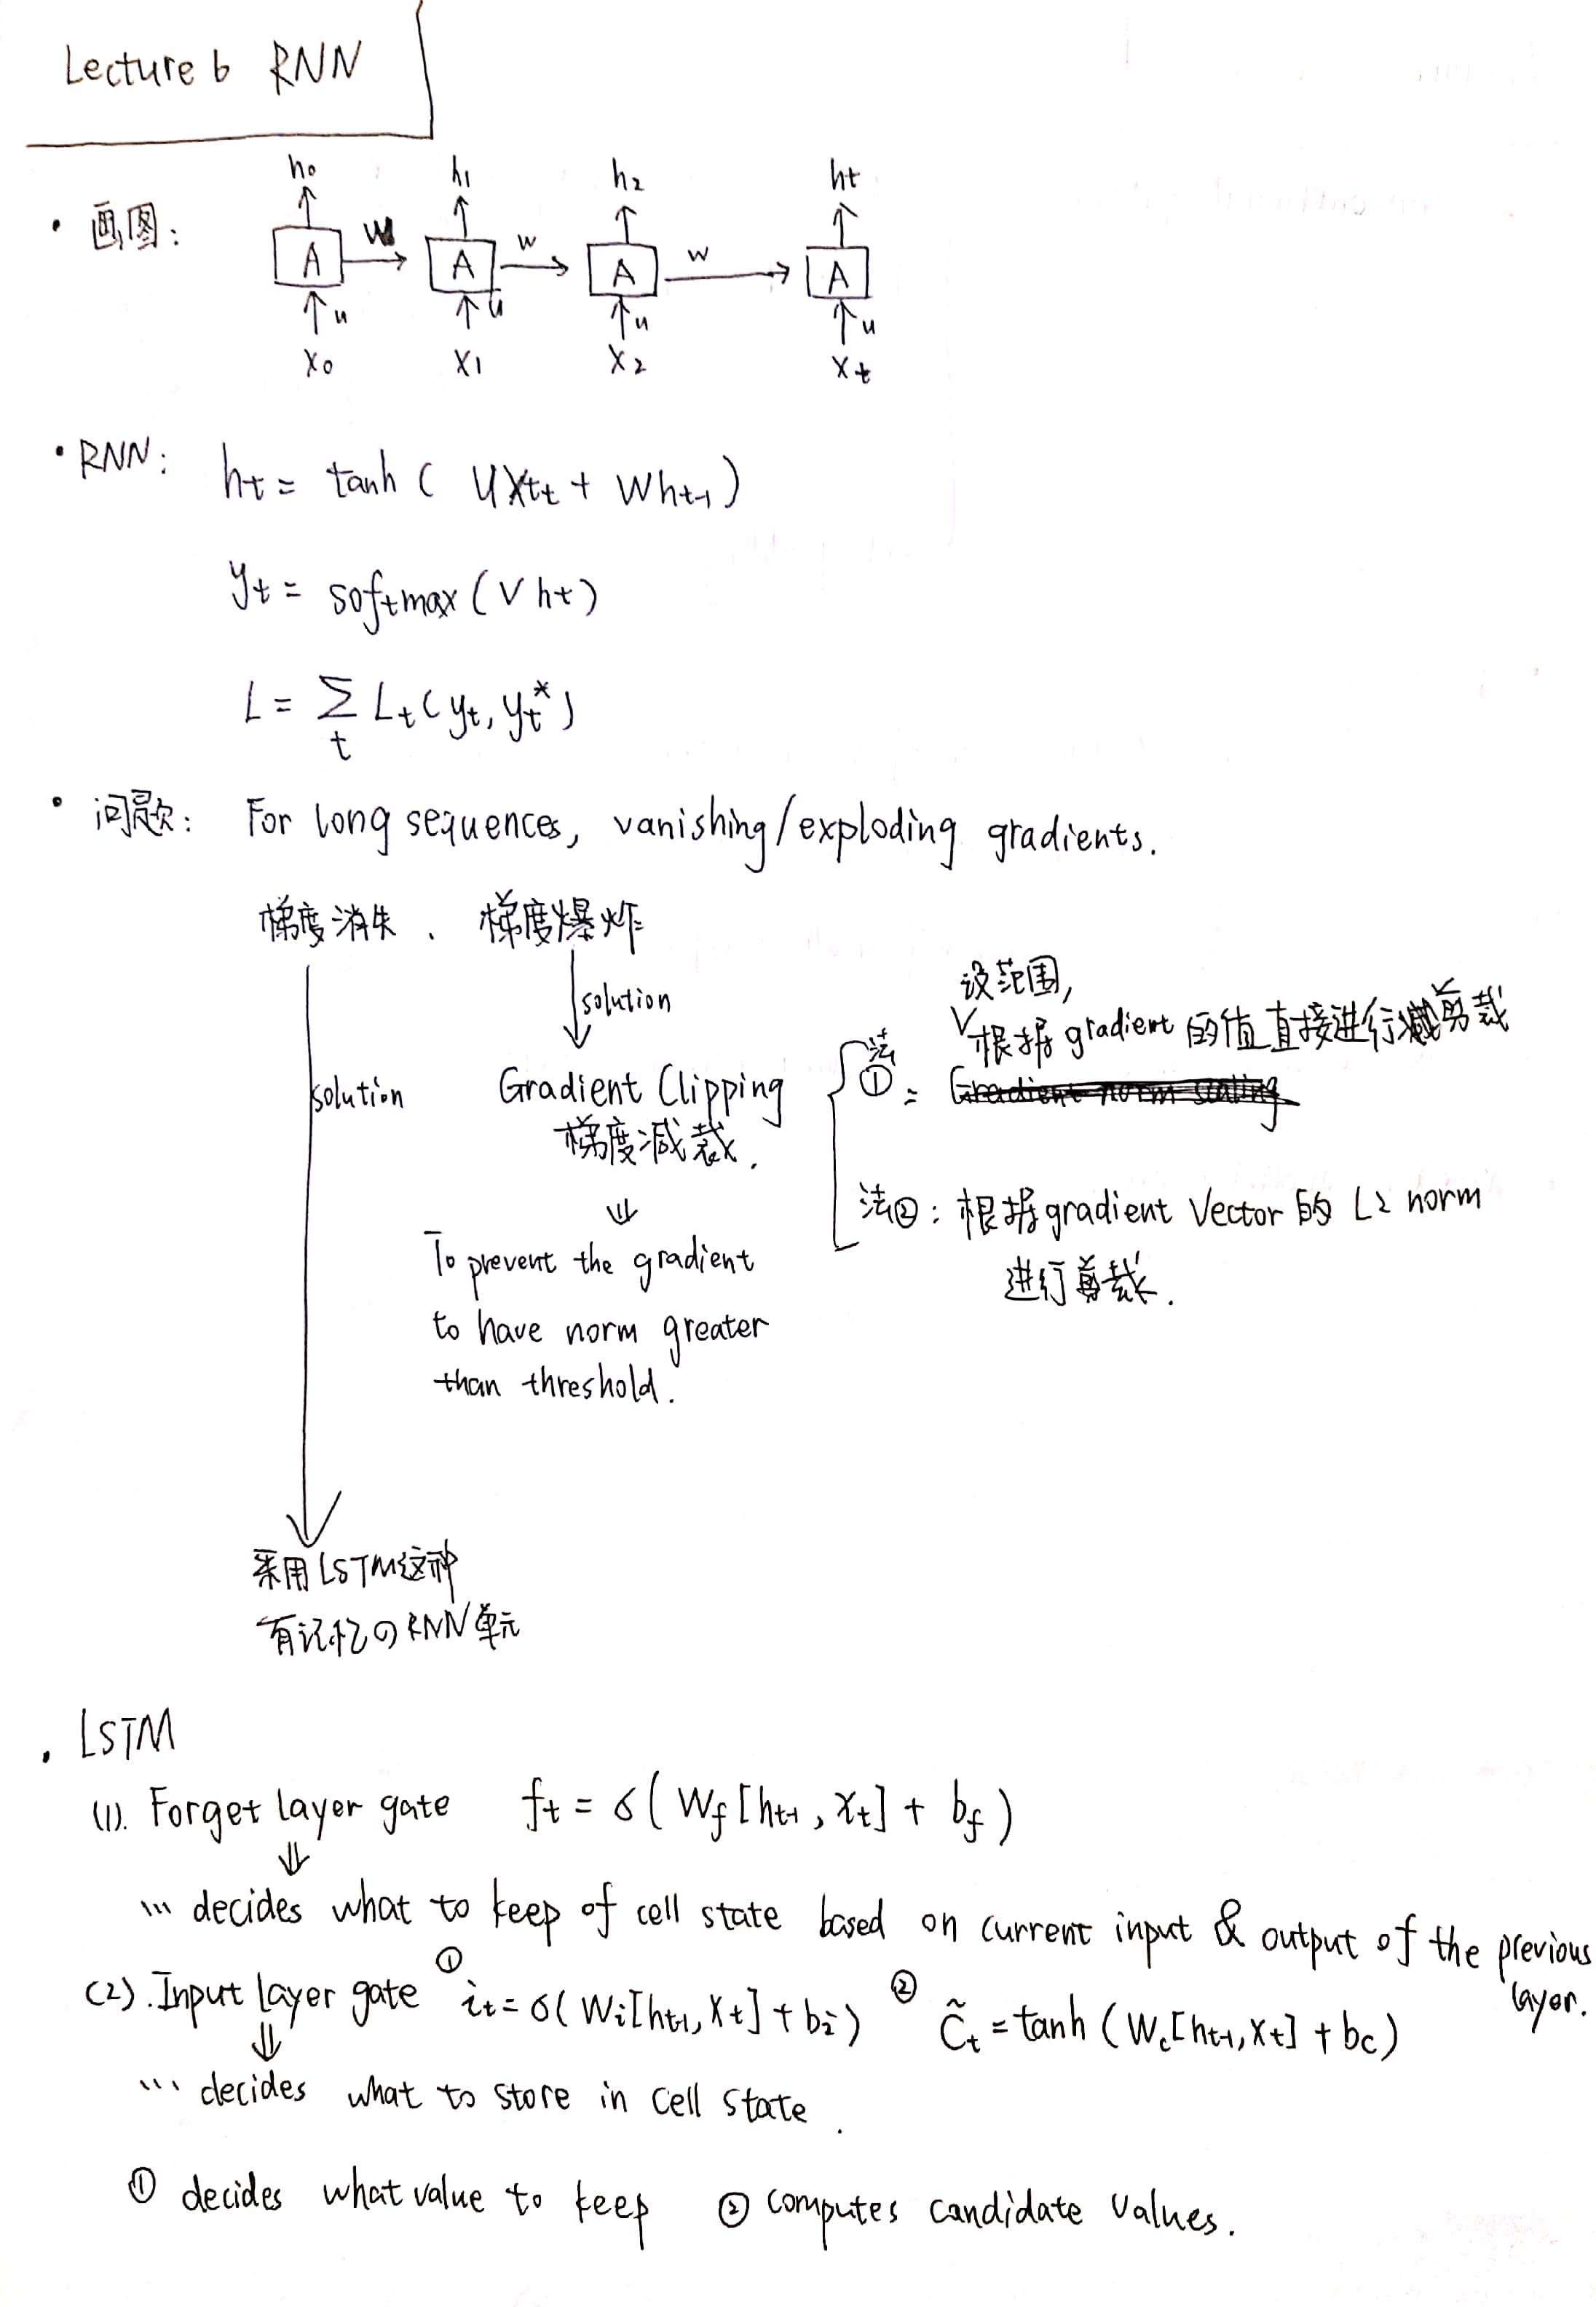 Lecture 6 RNN
h0 h1 h2 ht
· 画图: A W A w A w A
u u u u
x0 x1 x2 xt
· RNN: ht = tanh ( U Xt + W ht-1 )
yt = softmax ( V ht )
L = Σt Lt ( yt, yt* )
· 问题: For long sequences, vanishing/exploding gradients.
梯度消失 、 梯度爆炸
solution
solution
Gradient Clipping
梯度减裁.
⇓
To prevent the gradient
to have norm greater
than threshold.
设范围,
法①: ∨根据 gradient 的值直接进行剪裁
Gradient norm scaling
法②: 根据 gradient Vector 的 L2 norm
进行剪裁.
采用 LSTM 这种
有记忆の RNN 单元
· LSTM
(1). Forget layer gate ft = σ ( Wf [ht-1, xt] + bf )
⇓
... decides what to keep of cell state based on current input & output of the previous
layer.
(2). Input layer gate ① it = σ( Wi[ht-1, xt] + bi ) ② C̃t = tanh ( Wc[ht-1, xt] + bc )
⇓
... decides what to store in cell state.
① decides what value to keep ② computes candidate values.